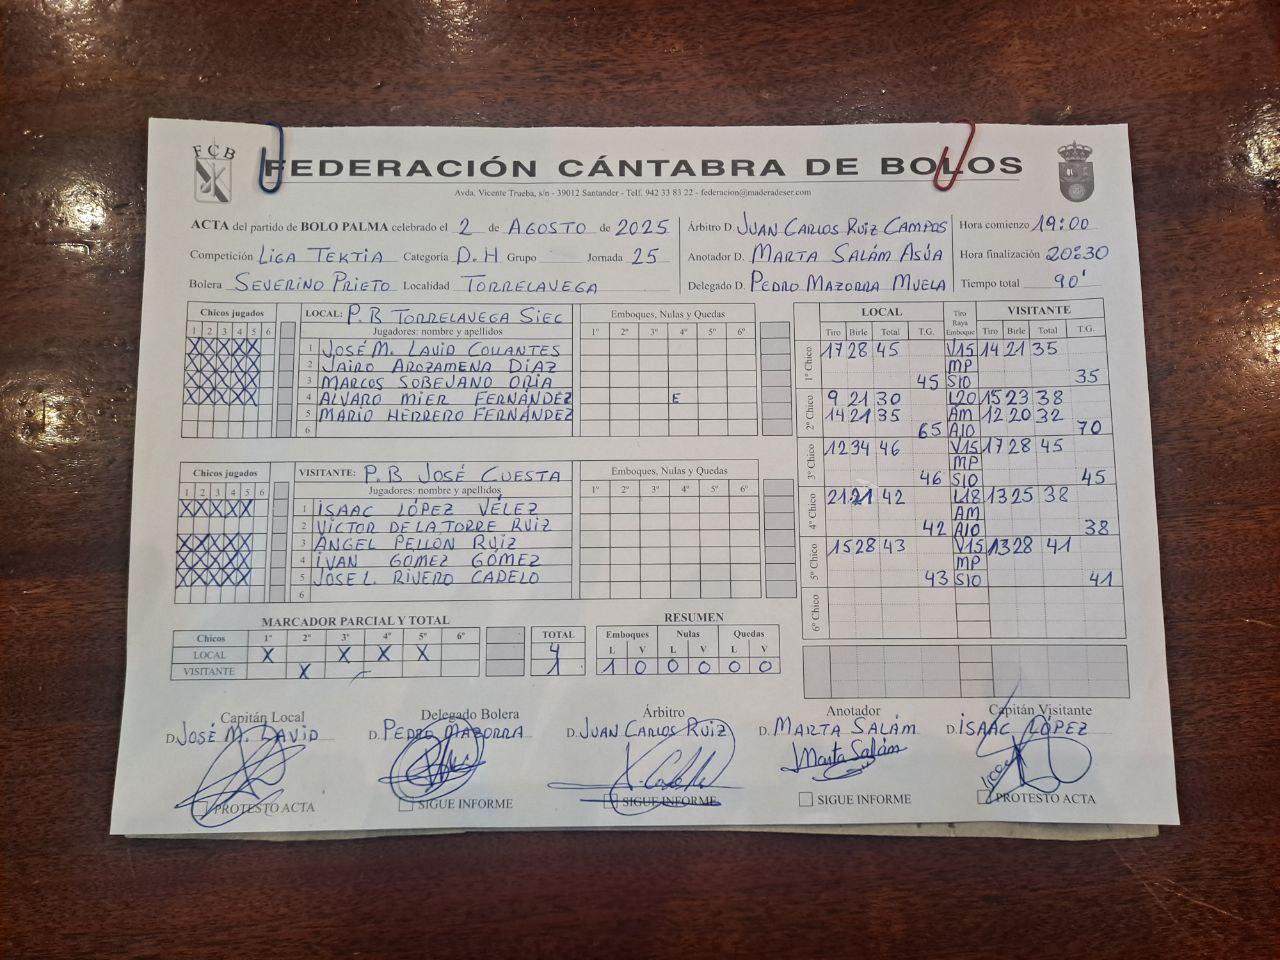 FCB
FEDERACIÓN CÁNTABRA DE BOLOS
Avda. Vicente Trueba, s/n - 39012 Santander - Telf. 942 33 83 22 - federacion@maderadeser.com
ACTA del partido de BOLO PALMA celebrado el 2 de AGOSTO de 2025
Competición LIGA TEKTIA Categoría D.H Grupo Jornada 25
Bolera SEVERINO PRIETO Localidad TORRELAVEGA
Árbitro D. JUAN CARLOS RUIZ CAMPOS
Anotador D. MARTA SALÁM ASÚA
Delegado D. PEDRO MAZORRA MUELA
Hora comienzo 19:00
Hora finalización 20:30
Tiempo total 90'
Chicos jugados
1 2 3 4 5 6
X X X X X
X X X X X
X X X X X
X X X X X
LOCAL: P.B TORRELAVEGA SIEC
Jugadores: nombre y apellidos
1 JOSÉ M. LAVID COLLANTES
2 JAIRO AROZAMENA DÍAZ
3 MARCOS SOBEJANO ORIA
4 ALVARO MIER FERNÁNDEZ
5 MARIO HERRERO FERNÁNDEZ
6
Emboques, Nulas y Quedas
1º 2º 3º 4º 5º 6º
E
Chicos jugados
1 2 3 4 5 6
X X X X X
X X X X X
X X X X X
X X X X X
VISITANTE: P.B JOSÉ CUESTA
Jugadores: nombre y apellidos
1 ISAAC LÓPEZ VÉLEZ
2 VICTOR DE LA TORRE RUIZ
3 ÁNGEL PELLÓN RUIZ
4 IVAN GOMEZ GÓMEZ
5 JOSE L. RIVERO CADELO
6
Emboques, Nulas y Quedas
1º 2º 3º 4º 5º 6º
LOCAL Tiro Raya Emboque VISITANTE
Tiro Birle Total T.G. Tiro Birle Total T.G.
1º Chico
17 28 45 V15 14 21 35
MP
45 S10 35
2º Chico
9 21 30 L20 15 23 38
14 21 35 AM 12 20 32
65 A10 70
3º Chico
12 34 46 V15 17 28 45
MP
46 S10 45
4º Chico
21 21 42 L18 13 25 38
AM
42 A10 38
5º Chico
15 28 43 V15 13 28 41
MP
43 S10 41
6º Chico
MARCADOR PARCIAL Y TOTAL
Chicos 1º 2º 3º 4º 5º 6º TOTAL
LOCAL X X X X 4
VISITANTE X 1
RESUMEN
Emboques Nulas Quedas
L V L V L V
1 0 0 0 0 0
Capitán Local
D. JOSÉ M. LAVID
PROTESTO ACTA
Delegado Bolera
D. PEDRO MAZORRA
SIGUE INFORME
Árbitro
D. JUAN CARLOS RUIZ
SIGUE INFORME
Anotador
D. MARTA SALÁM
Marta Salám
SIGUE INFORME
Capitán Visitante
D. ISAAC LÓPEZ
PROTESTO ACTA